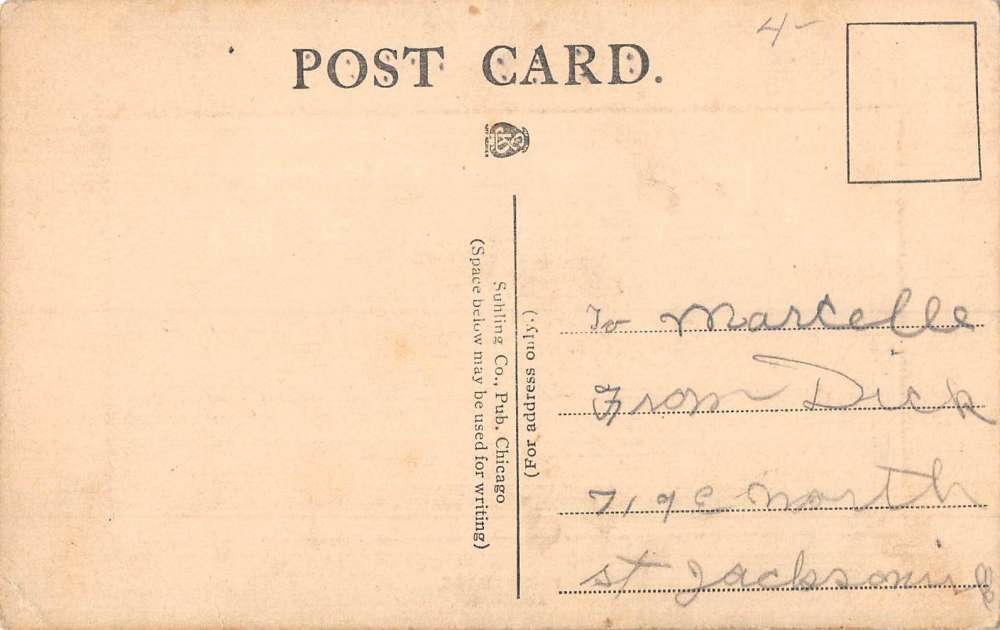 4-
POST CARD.
Suhling Co., Pub. Chicago
(Space below may be used for writing)
(For address only.)
To Marcelle
From Dick
719 E North
st Jacksonvill